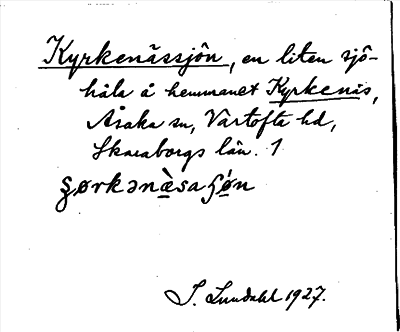 Kyrkenässjön, en liten sjö-
håla å hemmanet Kyrkenäs,
Åsaka sn, Vartofta hd,
Skaraborgs län. 1
S. Lundahl 1927.